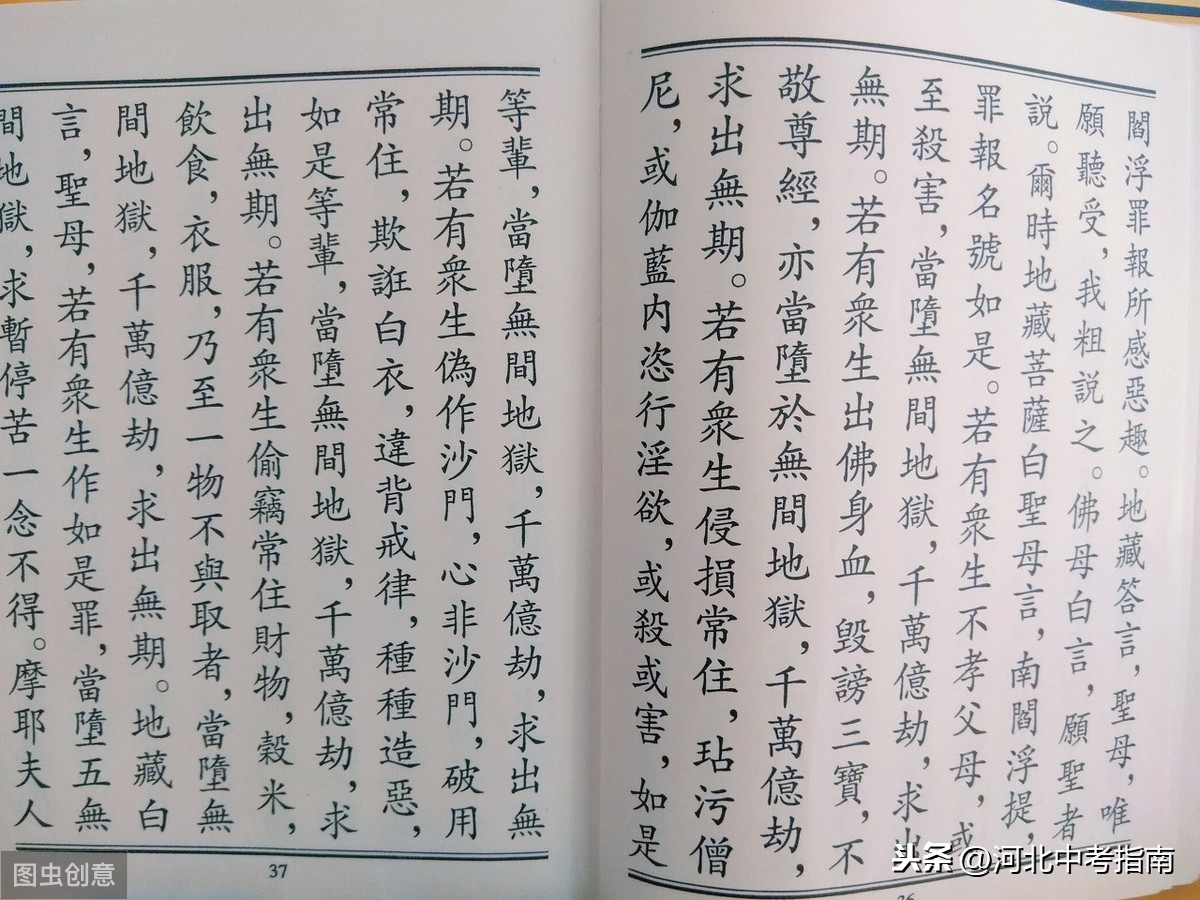 閻浮罪報所感惡趣。地藏答言，聖母，唯
願聽受，我粗說之。佛母白言，願聖者
說。爾時地藏菩薩白聖母言，南閻浮提，
罪報名號如是。若有眾生不孝父母，或
至殺害，當墮無間地獄，千萬億劫，求出
無期。若有眾生出佛身血，毀謗三寶，不
敬尊經，亦當墮於無間地獄，千萬億劫，
求出無期。若有眾生侵損常住，玷污僧
尼，或伽藍內恣行淫欲，或殺或害，如是
等輩，當墮無間地獄，千萬億劫，求出無
期。若有眾生偽作沙門，心非沙門，破用
常住，欺誑白衣，違背戒律，種種造惡，
如是等輩，當墮無間地獄，千萬億劫，求
出無期。若有眾生偷竊常住財物，穀米，
飲食，衣服，乃至一物不與取者，當墮無
間地獄，千萬億劫，求出無期。地藏白
言，聖母，若有眾生作如是罪，當墮五無
間地獄，求暫停苦一念不得。摩耶夫人
37
图虫创意
头条 @河北中考指南